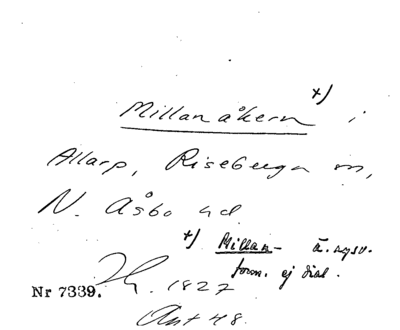 Millanåkern +) i
Allarp, Riseberga sn,
N. Åsbo hd
+) Millan- ä. nysv.
form. ej dial.
Nr 7339. 1827
Ant 48.